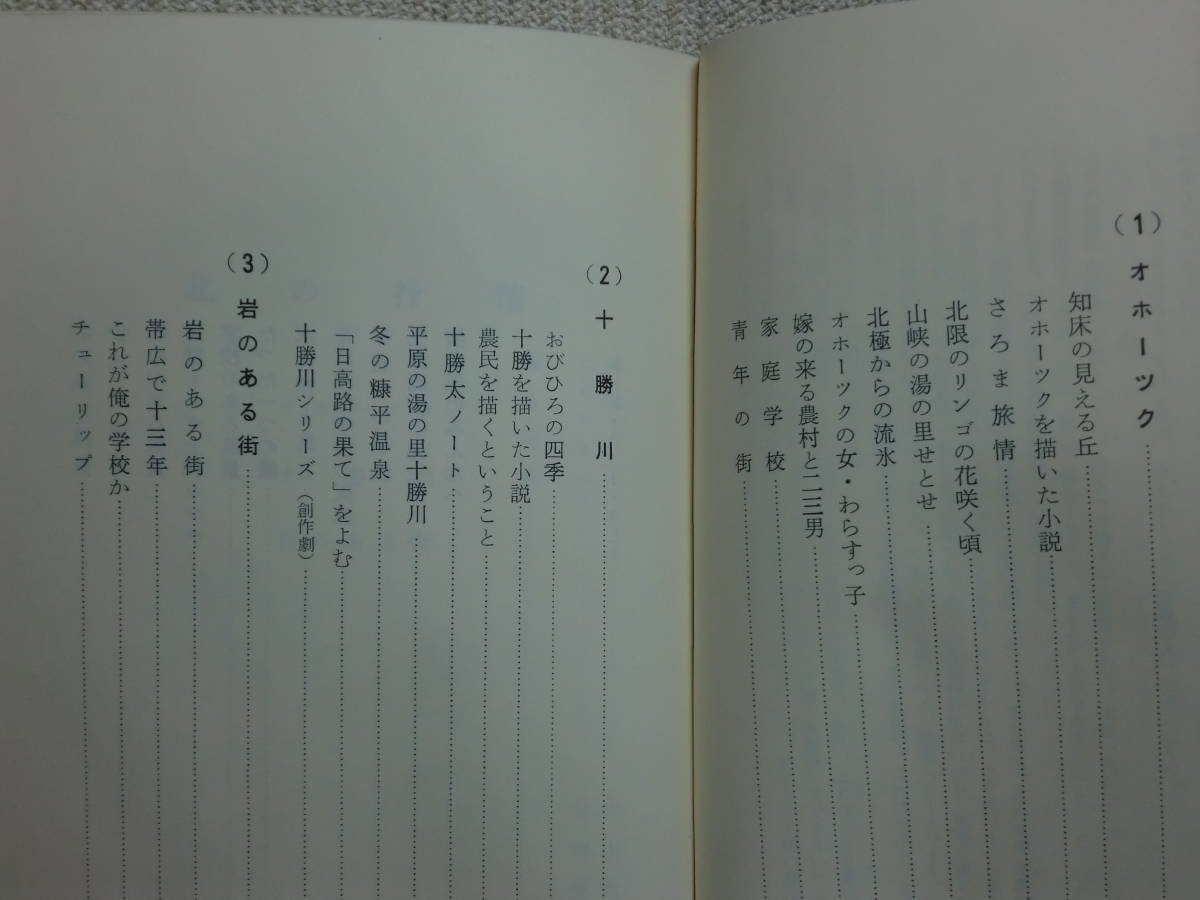 (1) オホーツク
知床の見える丘
オホーツクを描いた小説
さろま旅情
北限のリンゴの花咲く頃
山峡の湯の里せとせ
北極からの流氷
オホーツクの女・わらすっ子
嫁の来る農村と二三男
家庭学校
青年の街
(2) 十勝川
おびひろの四季
十勝を描いた小説
農民を描くということ
十勝太ノート
平原の湯の里十勝川
冬の糠平温泉
「日高路の果て」をよむ
十勝川シリーズ（創作劇）
(3) 岩のある街
岩のある街
帯広で十三年
これが俺の学校か
チューリップ